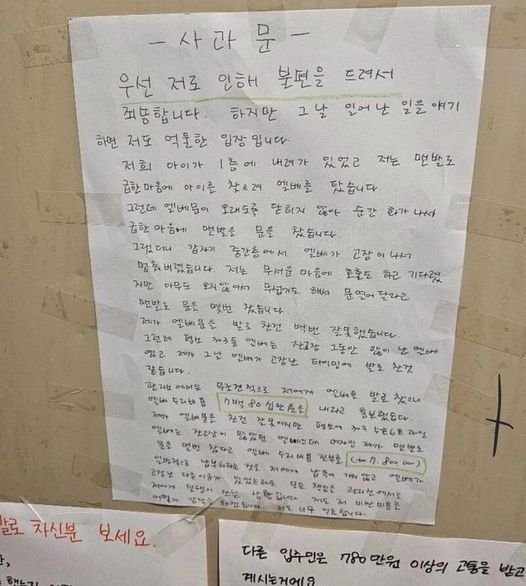 - 사과문 -
우선 저로 인해 불편을 드려서
죄송합니다. 하지만 그날 일어난 일을 얘기
하면 저도 억울한 입장입니다.
저희 아이가 1층에 내려가 있었고 저는 맨발로
급한마음에 아이를 찾으려 엘베를 탔습니다.
그런데 엘베문이 오래도록 닫히지 않아 순간 화가나서
급한 마음에 맨발로 문을 찼습니다.
그랬더니 갑자기 중간층에서 엘베가 고장이 나서
멈춰버렸습니다. 저는 무서운 마음에 호출도 하고 기다렸
지만 아무도 오지않아서 무섭기도 해서 문열어달라고
맨발로 문을 몇번 찼습니다.
제가 엘베문을 발로 찬건 백번 잘못했습니다.
그런데 평소 저3호 엘베는 잔고장 그동안 많이 난 엘베
였고 제가 그날 엘베가 고장난 타이밍에 발로 찬것
같습니다.
관리소에서는 무조건적으로 저에게 엘베를 발로 찼으니
엘베 수리비용 7백80십만원을 내라고 통보했습니다.
제가 엘베문을 찬건 잘못이지만 평소에 저3호
엘베는 잔고장이 많았던 엘베인데 여자인 제가 맨발로
문을 몇번 찼다고 엘베 수리비용 전부를
고장난 다른 이유가 있었는데도 모든 책임을 관리소에서는
저에게
발로 차신분 보세요.
다른 입주민은 780만원 이상의 고통을 받고
계시는거에요